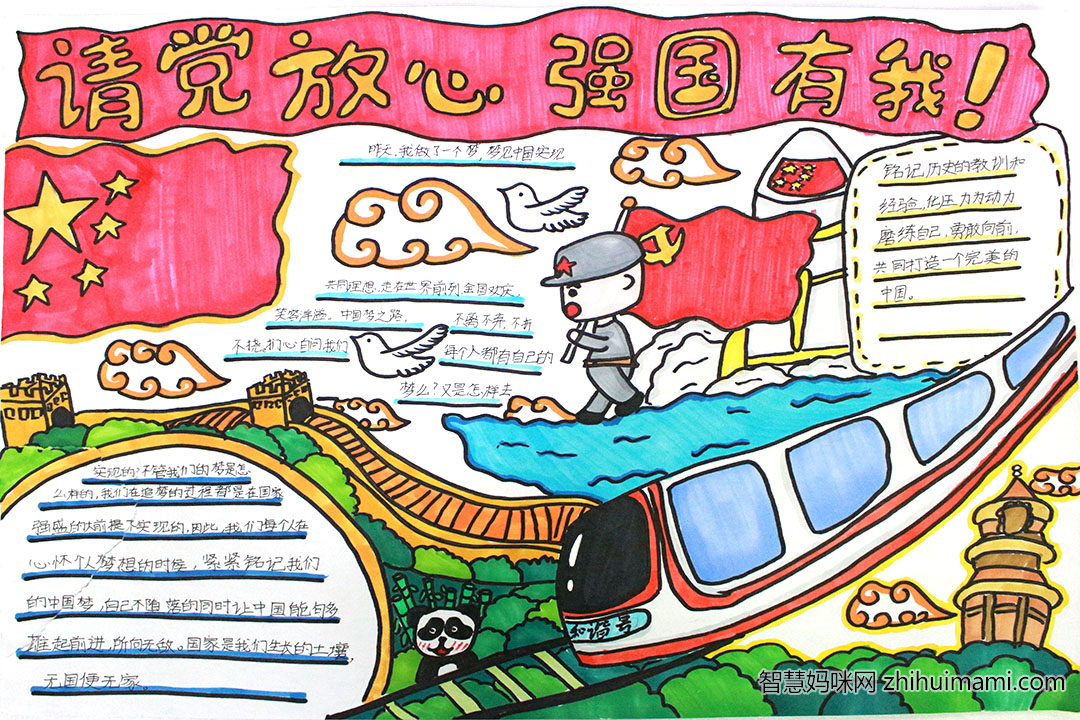 请党放心 强国有我!
昨天,我做了一个梦,梦见中国实现
共同理想,走在世界前列,全国欢庆,
笑容洋溢。中国梦之路,
不离不弃,不折
不挠,扪心自问我们
每个人都有自己的
梦么?又是怎样去
铭记历史的教训和
经验,化压力为动力
磨练自己,勇敢向前,
共同打造一个完美的
中国。
实现的?不管我们的梦是怎
么样的,我们在追梦的过程都是在国家
强盛的前提下实现的,因此,我们每个人在
心怀个人梦想的时候,紧紧铭记我们
的中国梦,自己不堕落的同时让中国能够多
雄起前进,所向无敌。国家是我们生长的土壤,
无国便无家。
和谐号
智慧妈咪网 zhihuimami.com